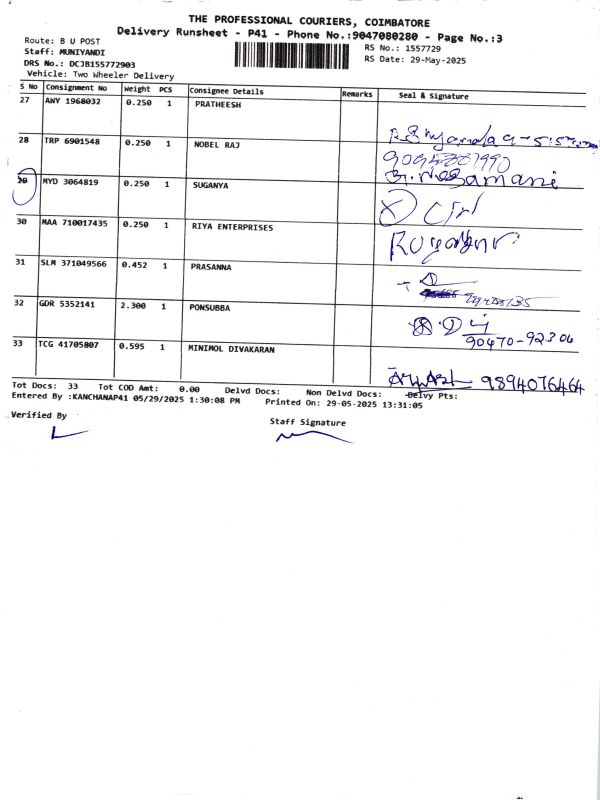 THE PROFESSIONAL COURIERS, COIMBATORE
Delivery Runsheet - P41 - Phone No.:9047080280 - Page No.:3
Route: B U POST
RS No.: 1557729
Staff: MUNIYANDI
RS Date: 29-May-2025
DRS No.: DCJB155772903
Vehicle: Two Wheeler Delivery
S No Consignment No Weight PCS Consignee Details Remarks Seal & Signature
27 AWY 1968032 0.250 1 PRATHEESH
28 TRP 6901548 0.250 1 NOBEL RAJ
29 MYD 3064819 0.250 1 SUGANYA
30 MAA 710017435 0.250 1 RIYA ENTERPRISES
31 SLM 371049566 0.452 1 PRASANNA
32 GDR 5352141 2.300 1 PONSUBBA
90470-92304
33 TCG 41705807 0.595 1 MINIMOL DIVAKARAN
9894076464
Tot Docs: 33 Tot COD Amt: 0.00 Delvd Docs: Non Delvd Docs: Delvy Pts:
Entered By :KANCHANAP41 05/29/2025 1:30:08 PM Printed On: 29-05-2025 13:31:05
Verified By
Staff Signature